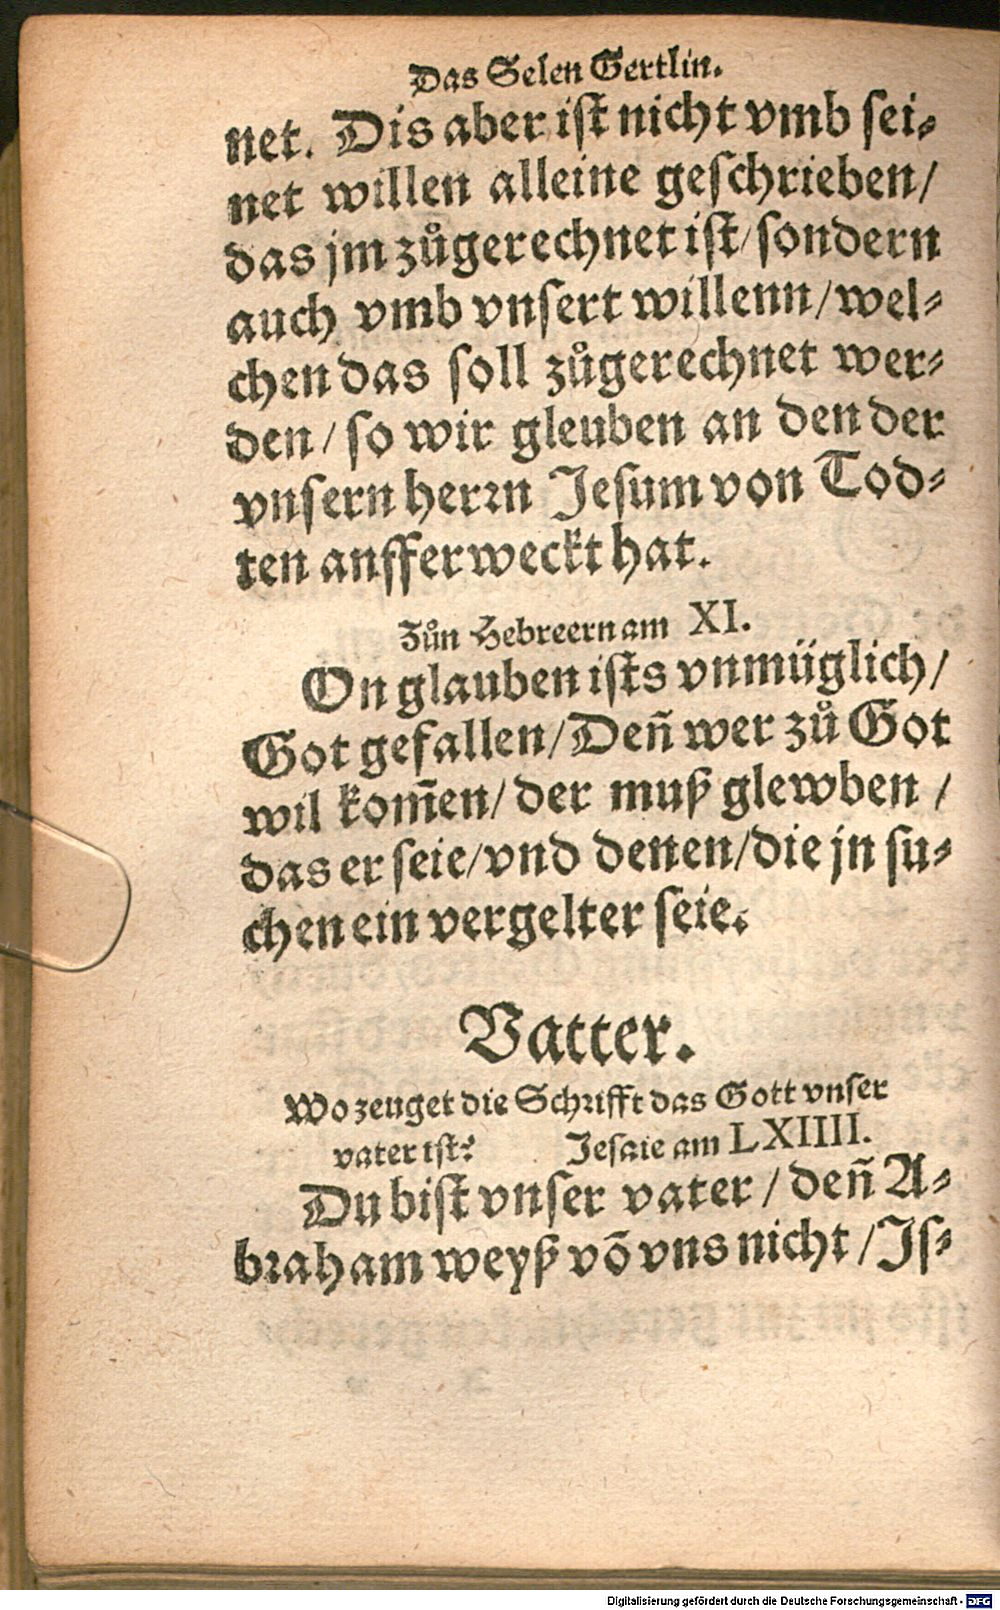 Das Selen Gertlin.
net. Dis aber ist nicht vmb sei⸗
net willen alleine geschrieben/
das jm zůgerechnet ist/ sondern
auch vmb vnsert willenn/ wel⸗
chen das soll zůgerechnet wer⸗
den/ so wir gleuben an den der
vnsern herrn Jesum von Tod⸗
ten anfferweckt hat.
Zůn Hebreern am XI.
On glauben ists vnmüglich/
Got gefallen/ Deñ wer zů Got
wil kom̃en/ der muß glewben /
das er seie/ vnd denen/ die jn su⸗
chen ein vergelter seie.
Vatter.
Wo zeuget die Schrifft das Gott vnser
vater ist? Jesaie am LXIIII.
Du bist vnser vater / deñ A⸗
braham weyß võ vns nicht / Is⸗
Digitalisierung gefördert durch die Deutsche Forschungsgemeinschaft - DFG